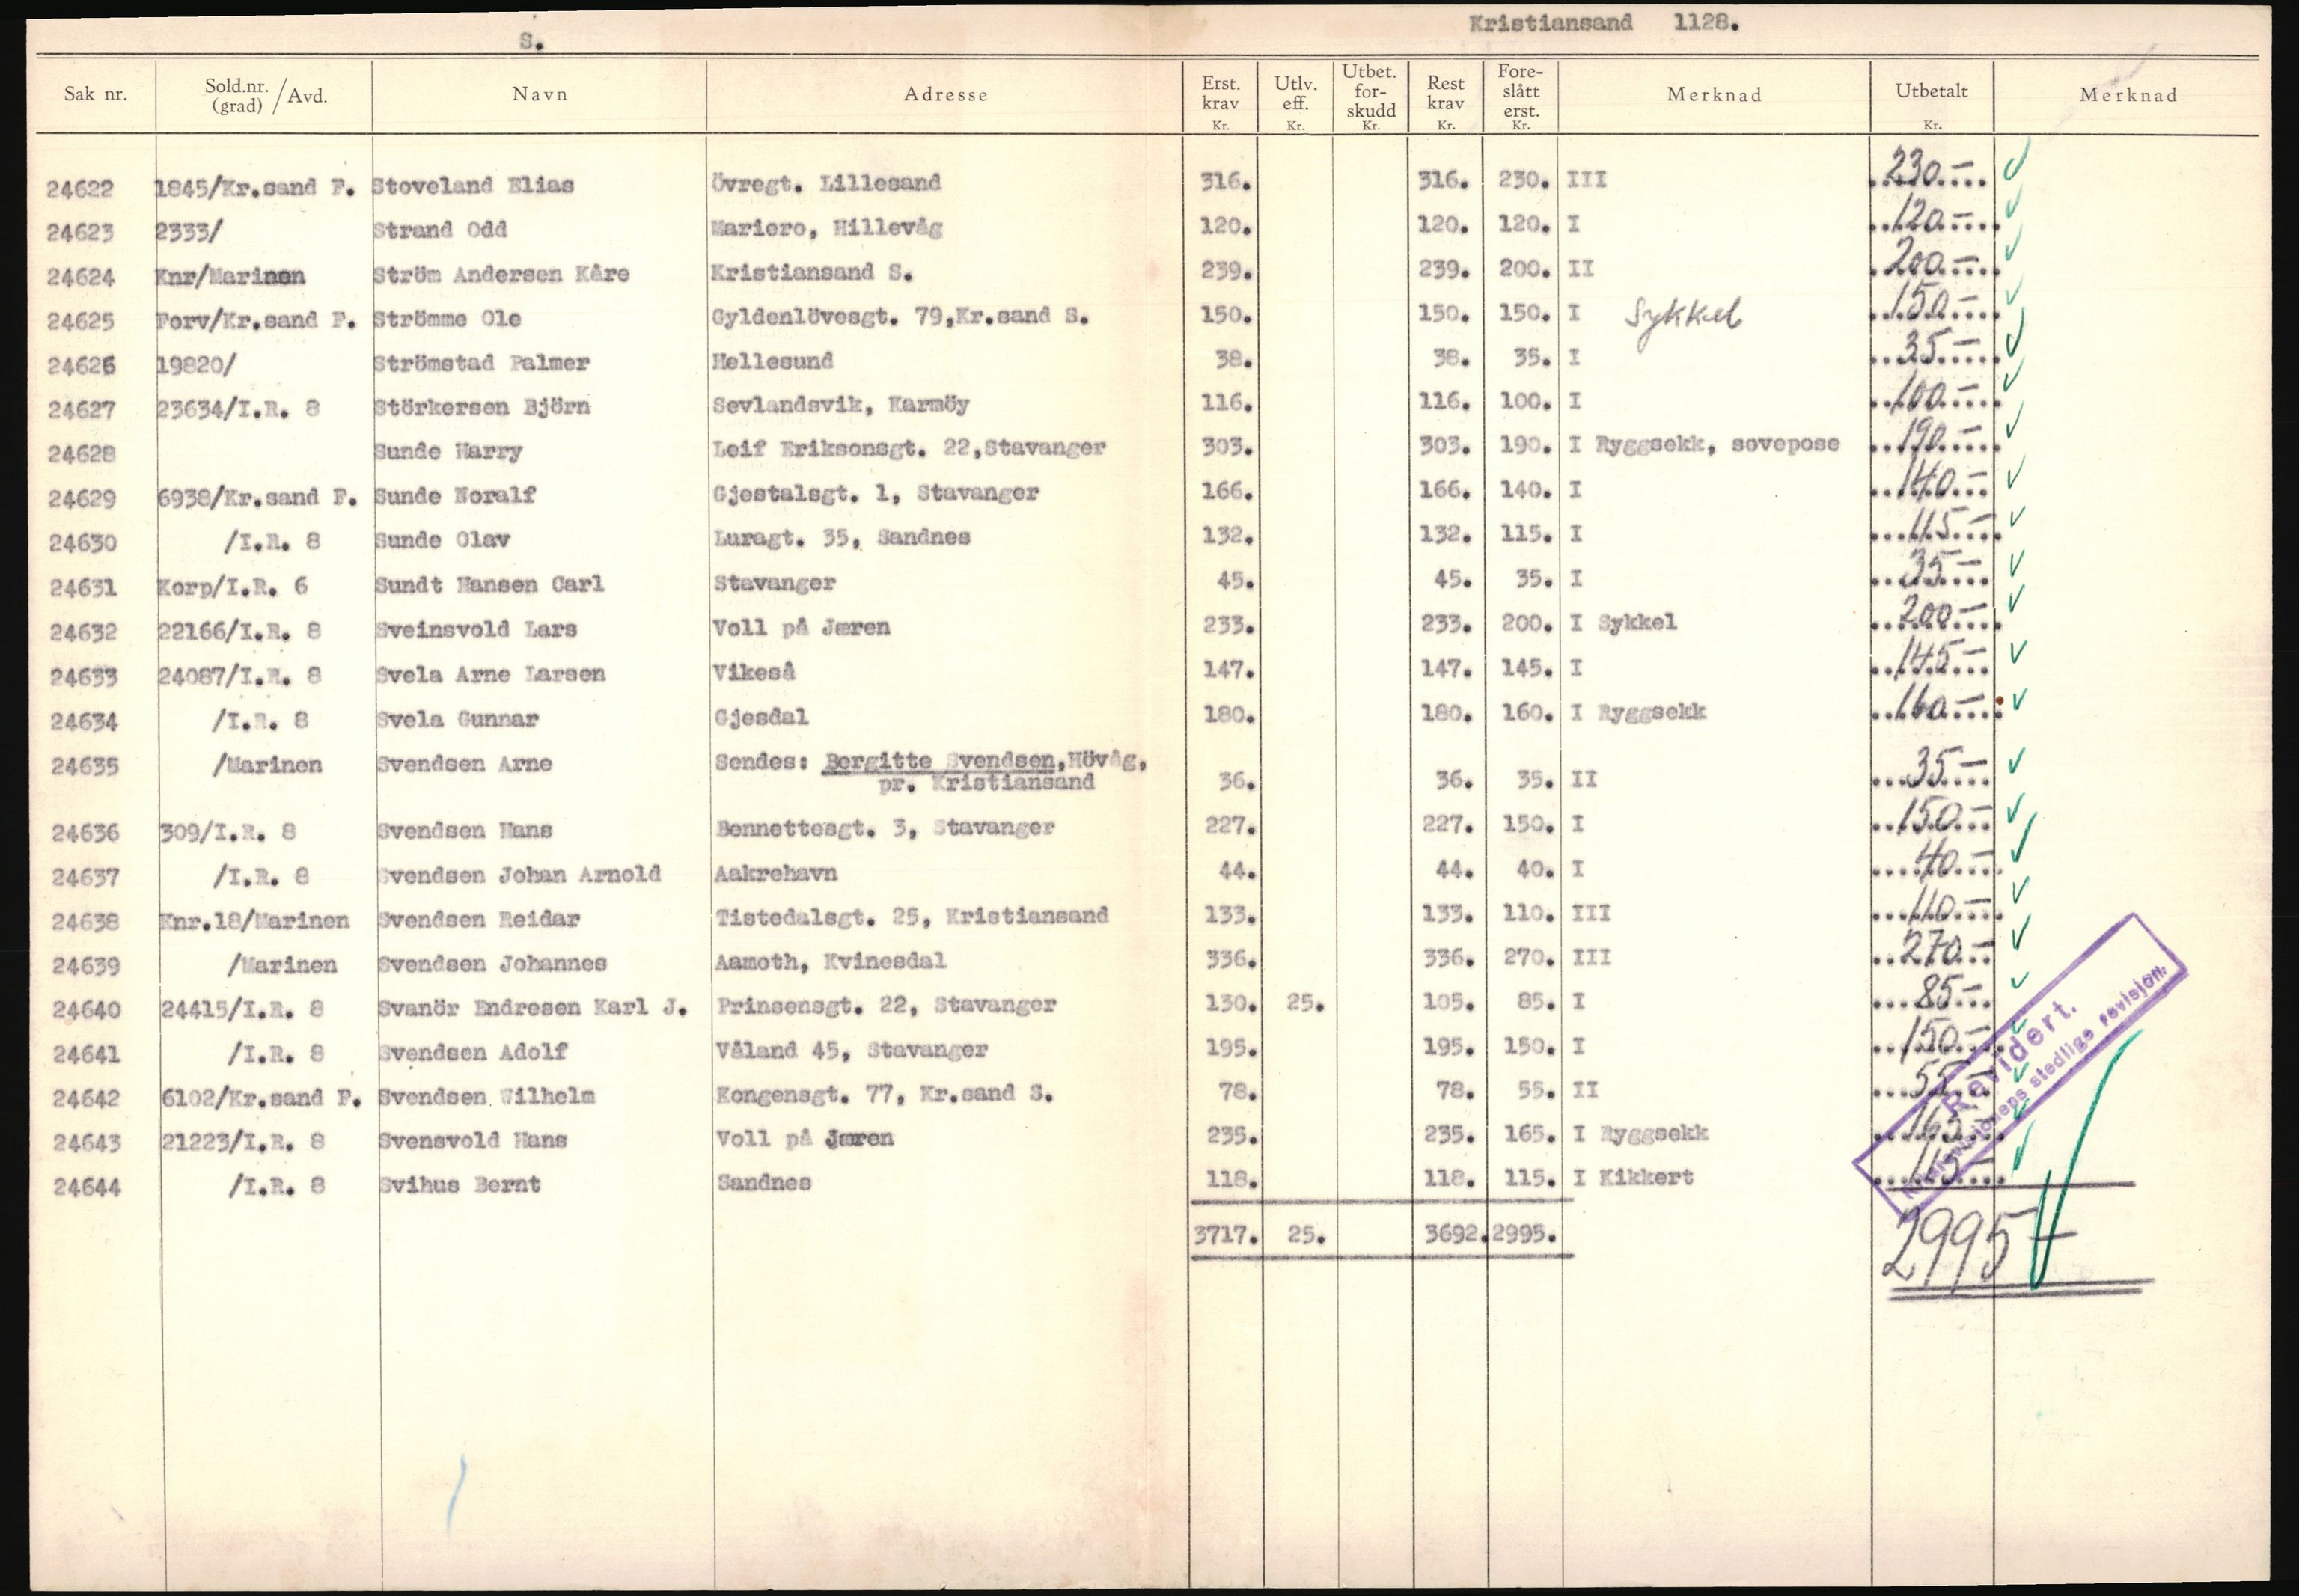 S.
Kristiansand 1128.
Sak nr. Sold.nr. (grad) / Avd. Navn Adresse Erst. krav Kr. Utlv. eff. Kr. Utbet. for- skudd Kr. Rest krav Kr. Fore- slått erst. Kr. Merknad Utbetalt Kr. Merknad
24622 1845/Kr.sand F. Stoveland Elias Övregt. Lillesand 316. 316. 230. III 230.-
24623 2333/ Strand Odd Mariero, Hillevåg 120. 120. 120. I 120.-
24624 Knr/Marinen Ström Andersen Kåre Kristiansand S. 239. 239. 200. II 200.-
24625 Forv/Kr.sand F. Strömme Ole Gyldenlövesgt. 79,Kr.sand S. 150. 150. 150. I Sykkel 150.-
24626 19820/ Strömstad Palmer Hellesund 38. 38. 35. I 35.-
24627 23634/I.R. 8 Störkersen Björn Sevlandsvik, Karmöy 116. 116. 100. I 100.-
24628 Sunde Harry Leif Eriksonsgt. 22,Stavanger 303. 303. 190. I Ryggsekk, sovepose 190.-
24629 6938/Kr.sand F. Sunde Noralf Gjestalsgt. 1, Stavanger 166. 166. 140. I 140.-
24630 /I.R. 8 Sunde Olav Luragt. 35, Sandnes 132. 132. 115. I 115.-
24631 Korp/I.R. 6 Sundt Hansen Carl Stavanger 45. 45. 35. I 35.-
24632 22166/I.R. 8 Sveinsvold Lars Voll på Jæren 233. 233. 200. I Sykkel 200.-
24633 24087/I.R. 8 Svela Arne Larsen Vikeså 147. 147. 145. I 145.-
24634 /I.R. 8 Svela Gunnar Gjesdal 180. 180. 160. I Ryggsekk 160.-
24635 /Marinen Svendsen Arne Sendes: Bergitte Svendsen,Hövåg,
pr. Kristiansand 36. 36. 35. II 35.-
24636 309/I.R. 8 Svendsen Hans Bennettesgt. 3, Stavanger 227. 227. 150. I 150.-
24637 /I.R. 8 Svendsen Johan Arnold Aakrehavn 44. 44. 40. I 40.-
24638 Knr.18/Marinen Svendsen Reidar Tistedalsgt. 25, Kristiansand 133. 133. 110. III 110.-
24639 /Marinen Svendsen Johannes Aamoth, Kvinesdal 336. 336. 270. III 270.-
24640 24415/I.R. 8 Svanör Endresen Karl J. Prinsensgt. 22, Stavanger 130. 25. 105. 85. I 85.-
24641 /I.R. 8 Svendsen Adolf Våland 45, Stavanger 195. 195. 150. I 150.-
24642 6102/Kr.sand F. Svendsen Wilhelm Kongensgt. 77, Kr.sand S. 78. 78. 55. II 55.-
24643 21223/I.R. 8 Svensvold Hans Voll på Jæren 235. 235. 165. I Ryggsekk 165.-
24644 /I.R. 8 Svihus Bernt Sandnes 118. 118. 115. I Kikkert 115.-
3717. 25. 3692. 2995. 2995.-
Revidert.
stedlige revisjon.